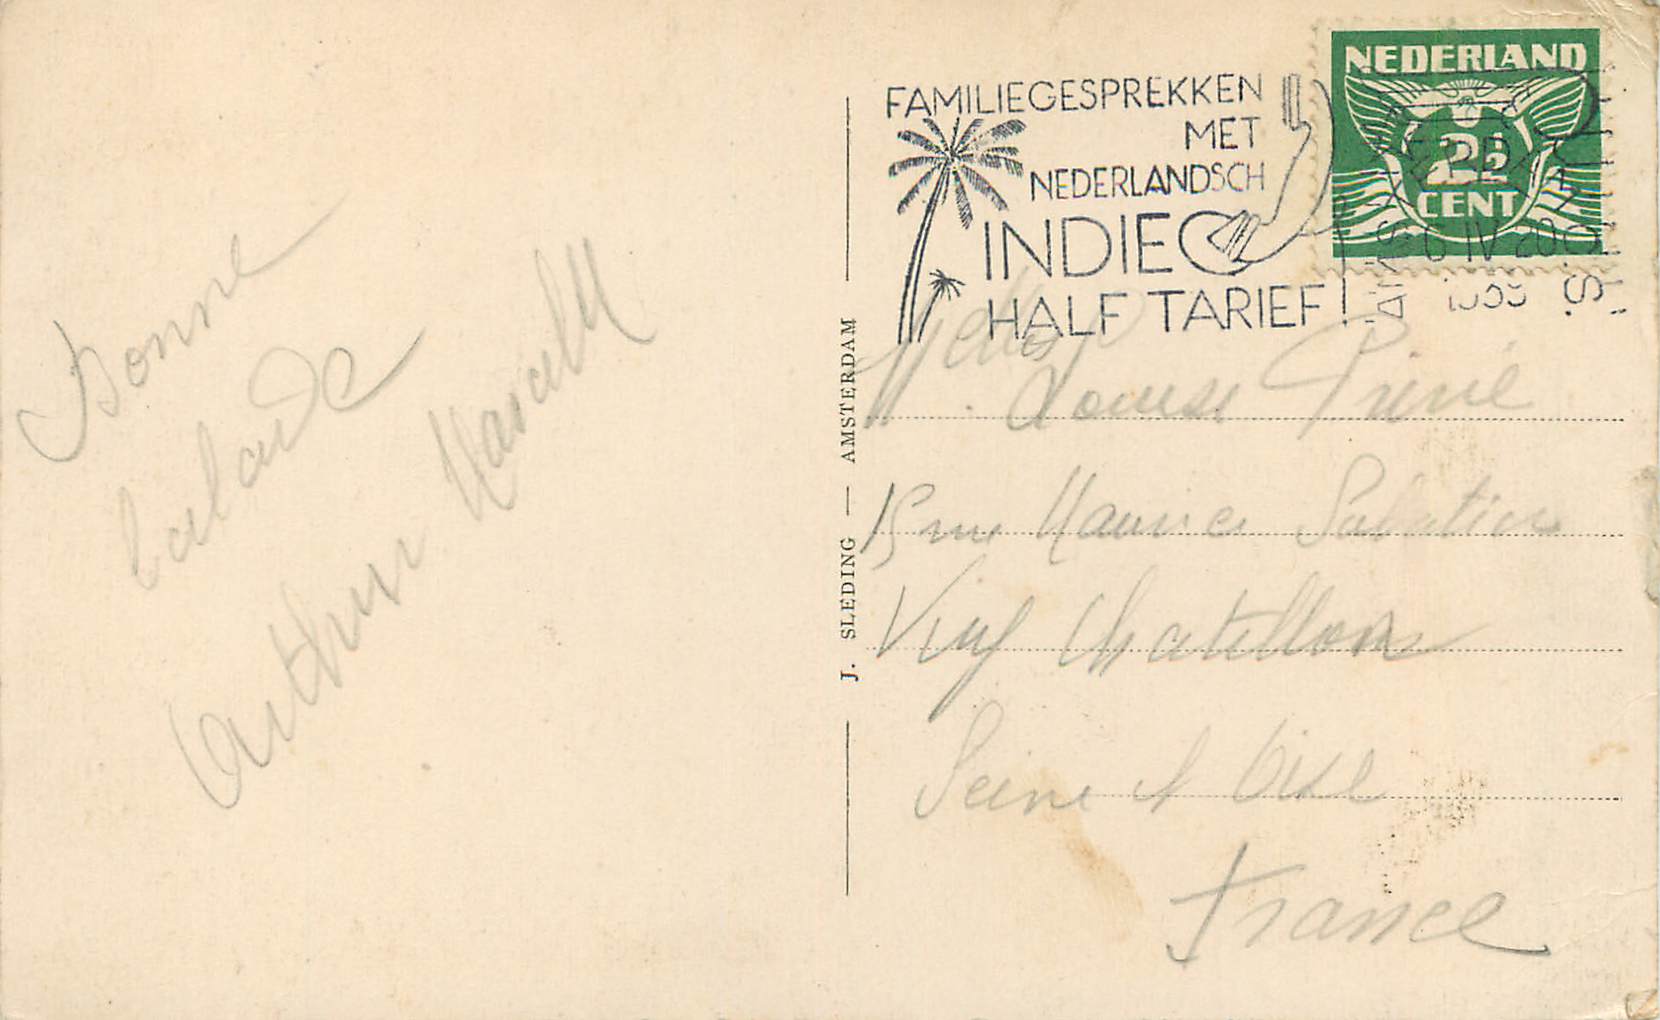 Bonne
balade
Arthur Marcelle
J. SLEDING — AMSTERDAM
FAMILIEGESPREKKEN
MET
NEDERLANDSCH
INDIE
HALF TARIEF!
NEDERLAND
2½
CENT
Louise
15 rue Maurice Sabatier
Viry Chatillon
Seine et Oise
France